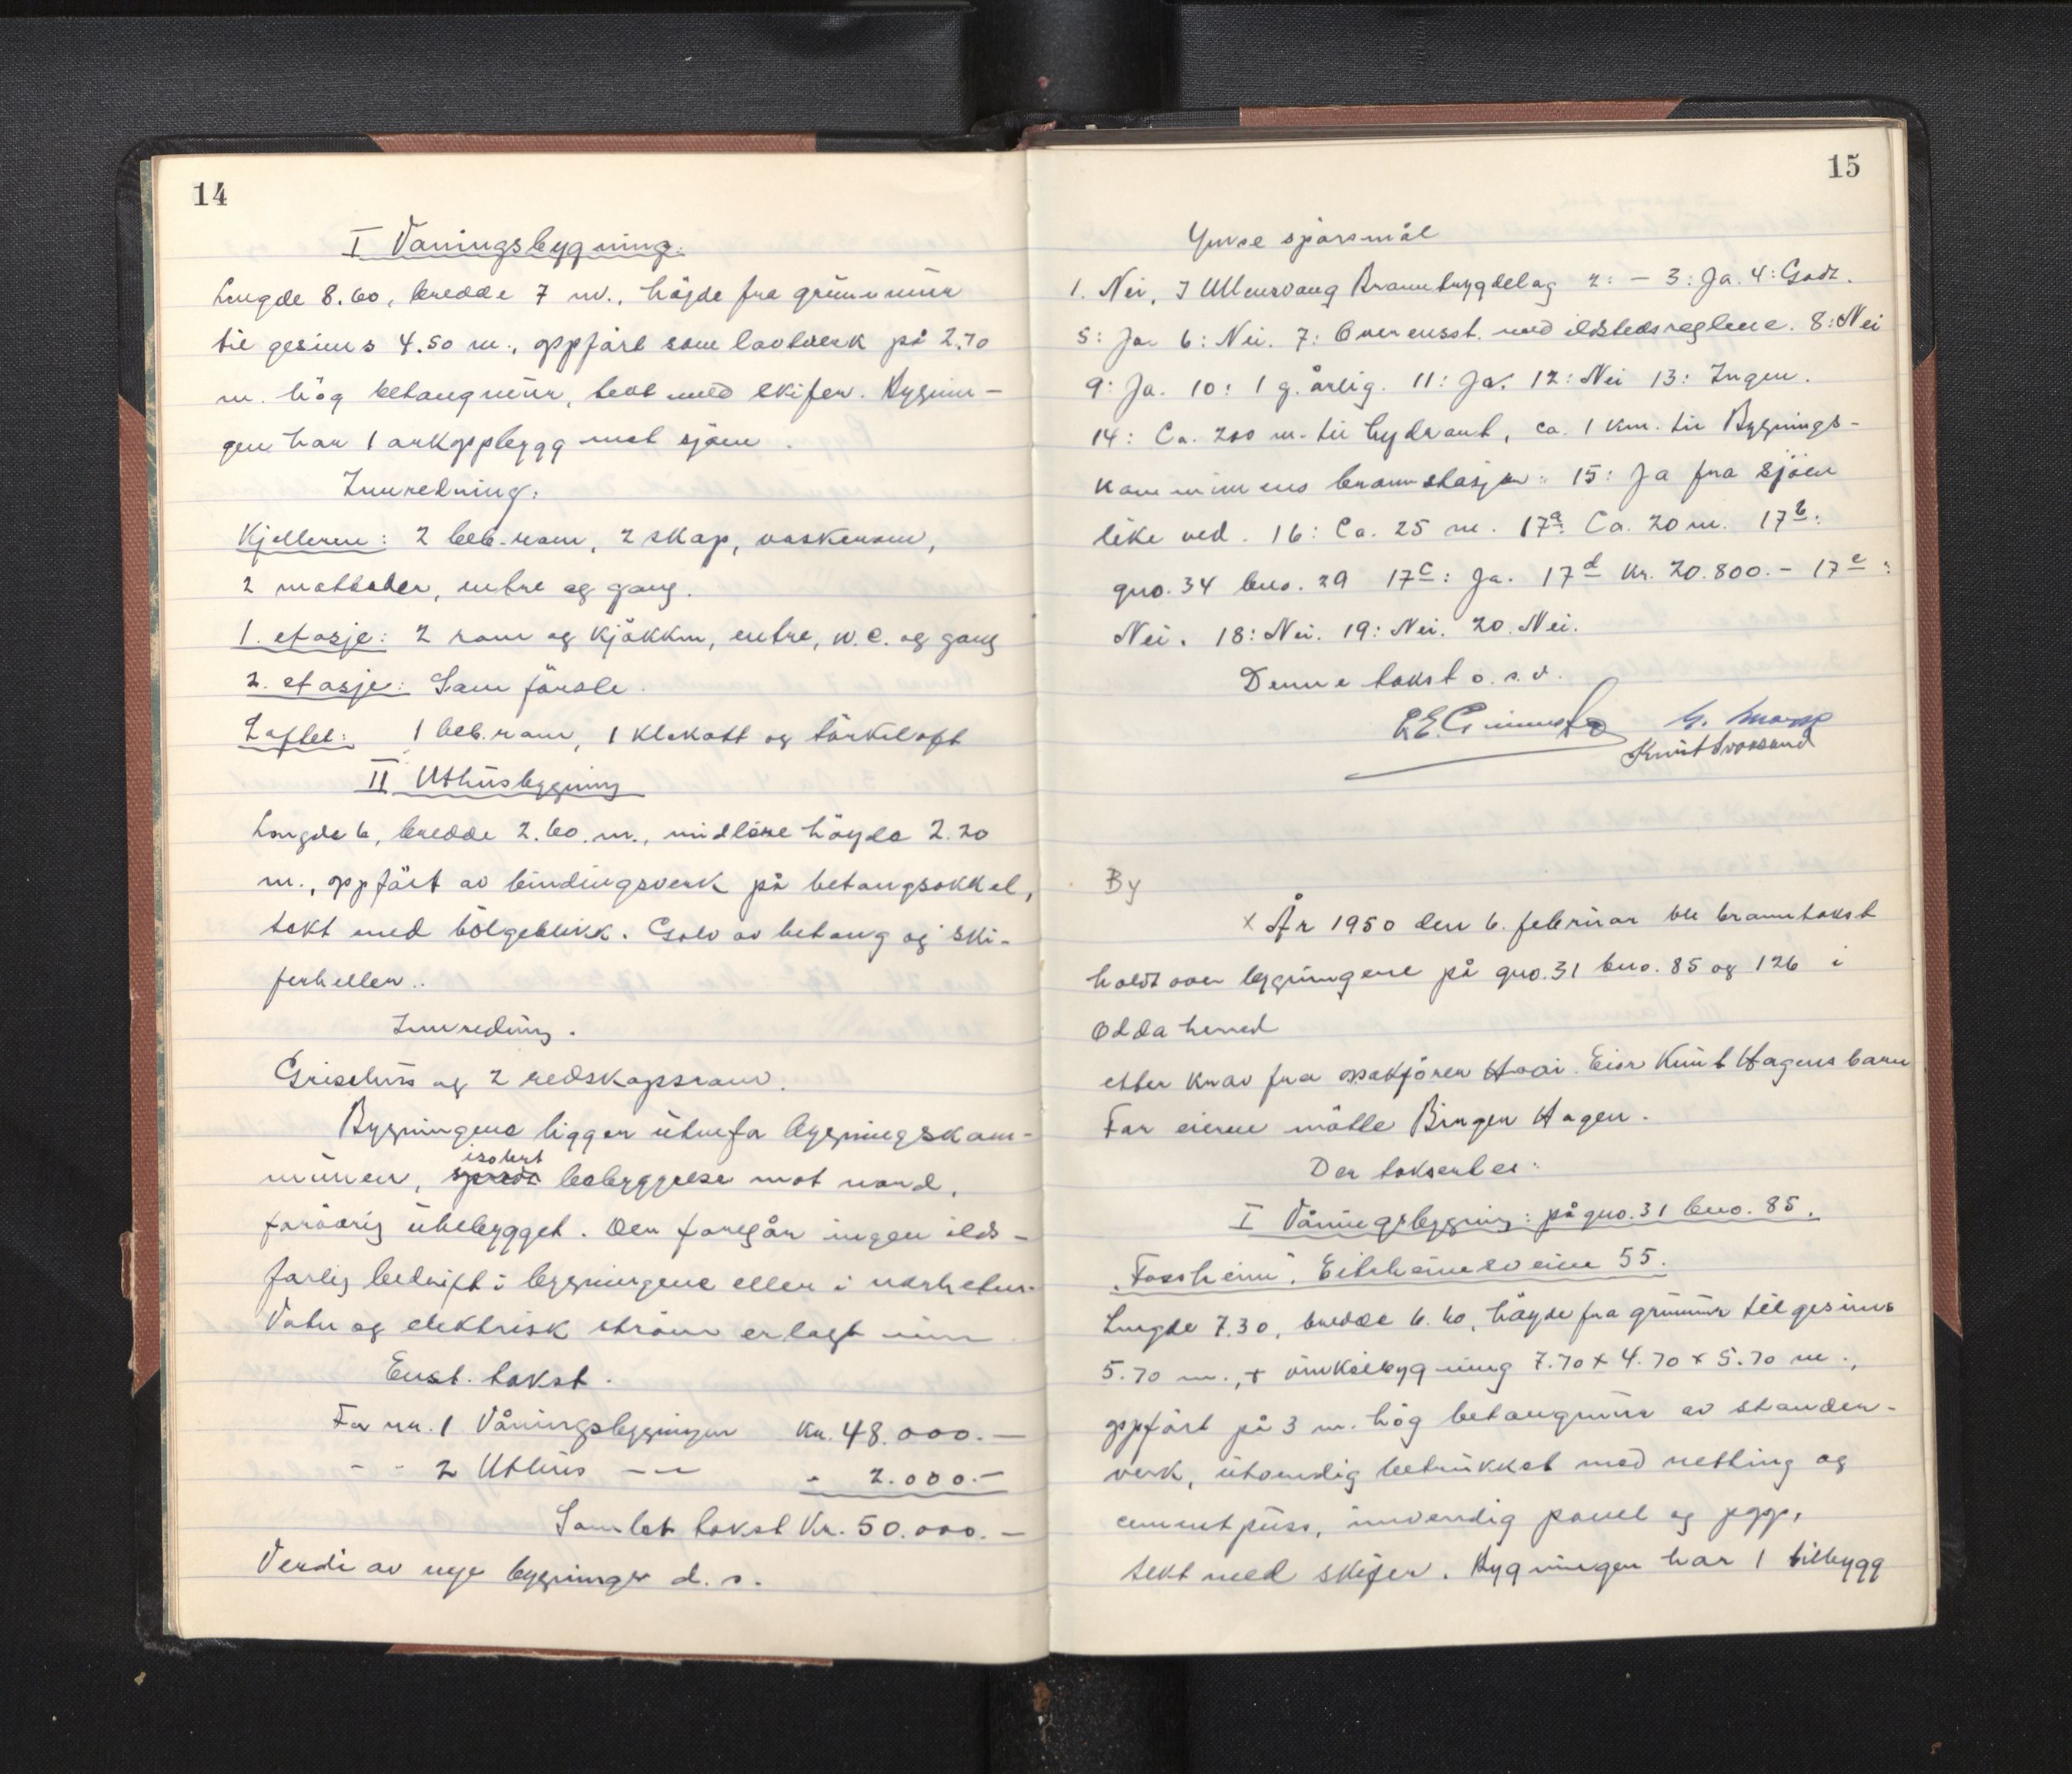 14
I Våningsbygning.
Lengde 8.60, bredde 7 m., höyde fra grunnmur
til gesims 4.50 m., oppfört som laftverk på 2.70
m. hög betongmur, tekt med skifer. Bygnin-
gen har 1 arkoppbygg mot sjöen.
Innredning:
Kjelleren: 2 beb.rom, 2 skap, vaskerom,
2 matboder, entre og gang.
1. etasje: 2 rom og kjökken, entre, w.c. og gang
2. etasje: Som förste.
Loftet: 1 beb.rom, 1 klekott og törkeloft
II Uthusbygning
Lengde 6, bredde 2.60 m., midlere höyde 2.20
m., oppfört av bindingsverk på betongsokkel,
tekt med bölgeblikk. Golv av betong og ski-
ferheller.
Innredning.
Grisehus og 2 redskapsrom.
Bygningene ligger utenfor bygningskom-
munen, spredt isolert bebyggelse mot nord,
forövrig ubebygget. Der foregår ingen ilds-
farlig bedrift i bygningene eller i nærheten.
Vatn og elektrisk ström er lagt inn
Enst. takst.
For nr. 1 Våningsbygningen Kr. 48.000.—
- - 2 Uthus —"— - 2.000.—
Samlet takst Kr. 50.000.—
Verdi av nye bygninger d. s.
15
Ymse spörsmål
1. Nei, I Ullensvang Brannbygdelag 2: — 3: Ja. 4: Godt.
5: Ja 6: Nei. 7: Overensst. med ildstedsreglene. 8: Nei
9: Ja. 10: 1 g. årlig. 11: Ja. 12: Nei 13: Ingen.
14: Ca. 200 m. til hydrant, ca. 1 km. til Bygnings-
kommunens brannstasjon. 15: Ja fra sjöen
like ved. 16: Ca. 25 m. 17a: Ca. 20 m. 17b:
gno. 34 bno. 29 17c: Ja. 17d Kr. 20.800.- 17e:
Nei. 18: Nei. 19: Nei. 20. Nei.
Denne takst o. s. v.
By
x År 1950 den 6. februar ble branntakst
holdt over bygningene på gno. 31 bno. 85 og 126 i
Odda herred
etter krav fra Eier Knut Hagens barn
For eierne mötte Birger Hagen.
Der takseres:
I Våningsbygning: på gno. 31 bno. 85.
"Fossheim". Eitrheimsveien 55.
Lengde 7.30, bredde 6.60, höyde fra grunnmur til gesims
5.70 m., + 7.70 x 4.70 x 5.70 m.,
oppfört på 3 m. hög betongmur av stender-
verk, utvendig betrukket med netting og
cementpuss, innvendig panel og papp,
tekt med skifer. Bygningen har 1 tilbygg